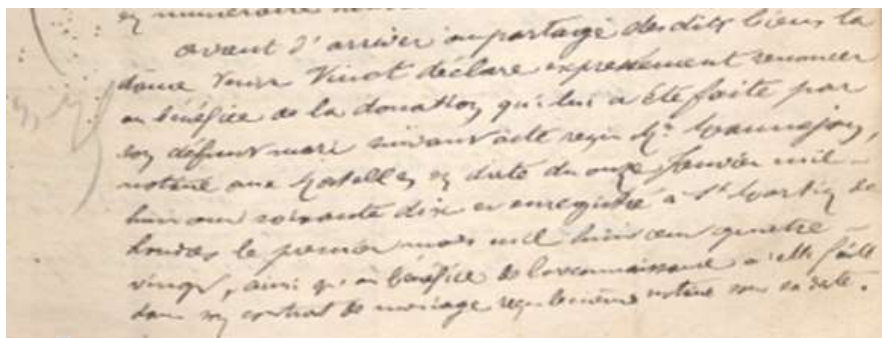 en numéraire
avant d'arriver au partage des dits biens la
dame Veuve Vinot déclare expressément renoncer
au bénéfice de la donation qui lui a été faite par
son défunt mari suivant acte reçu Me
notaire aux en date du onze Janvier mil
huit cent soixante dix et enregistré à St Martin de
Londres le premier mars mil huit cent quatre
vingt, ainsi qu'au bénéfice de la reconnaissance à elle faite
dans son contrat de mariage reçu notaire sous sa date.